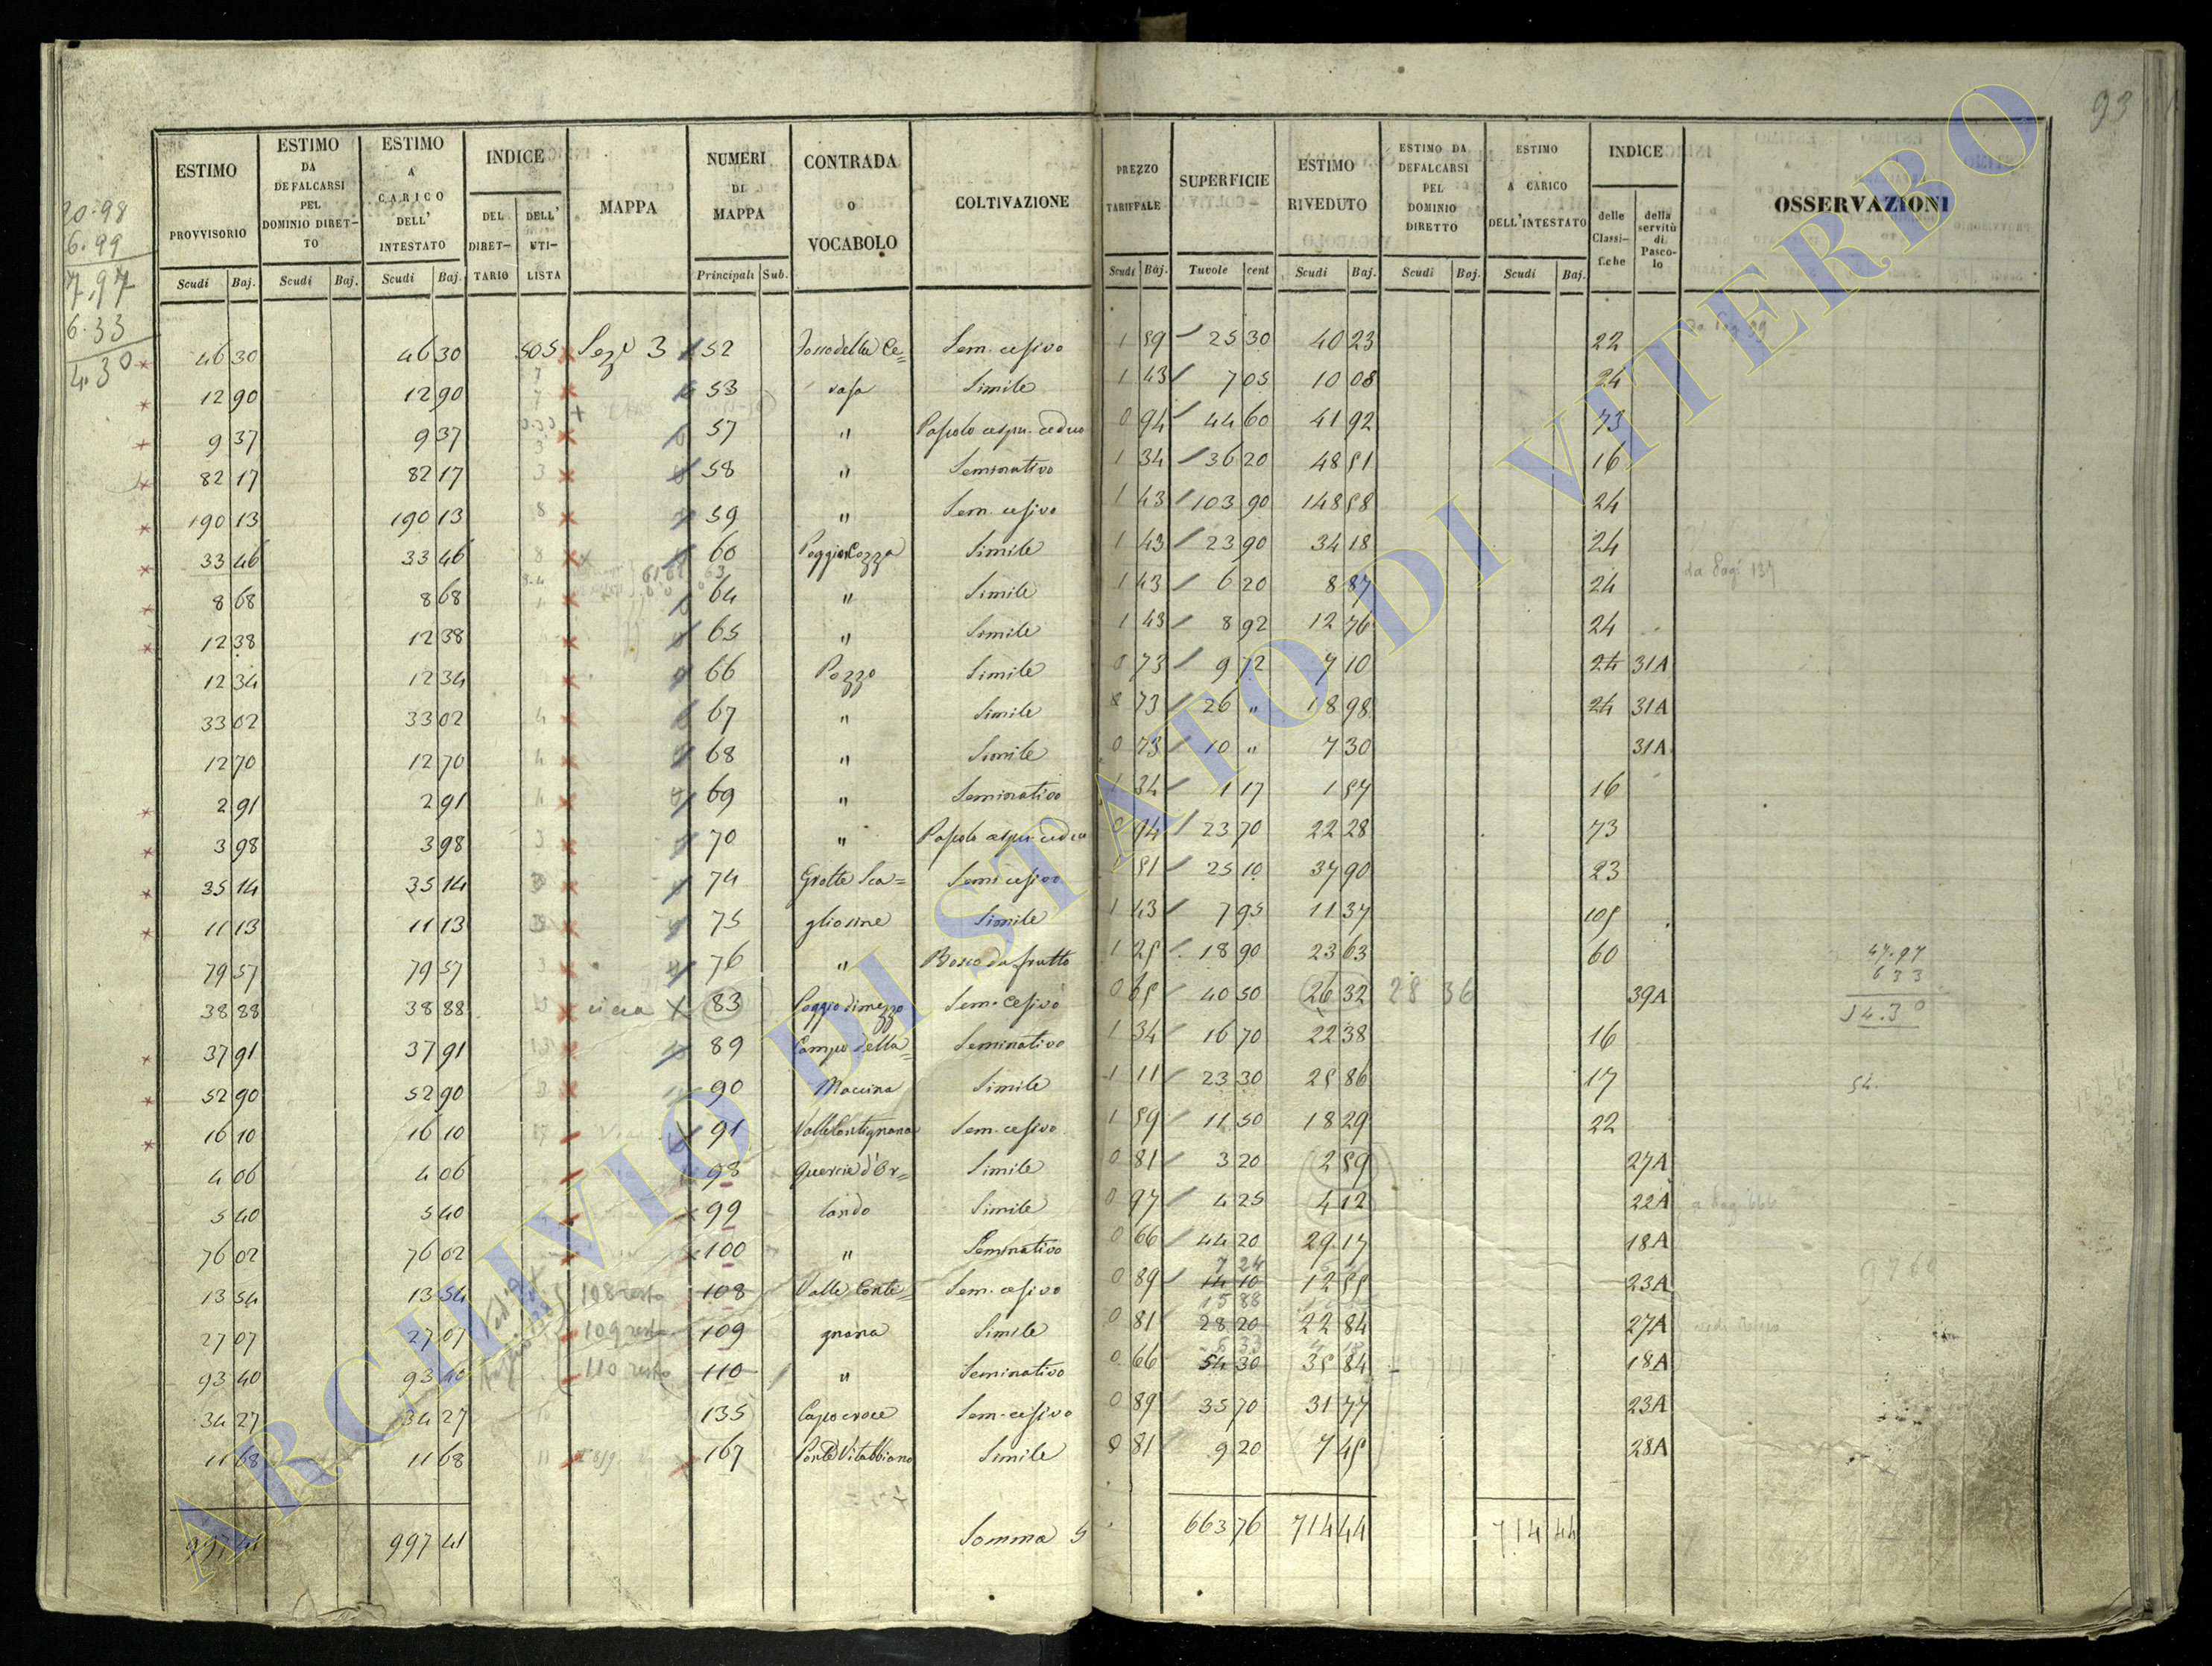 93
20.98
6.99
7,97
6.33
4.30
ESTIMO PROVVISORIO
ESTIMO DA DEFALCARSI PEL DOMINIO DIRET-TO
ESTIMO A CARICO DELL' INTESTATO
INDICE
DEL DIRET-TARIO
DELL' UTI-LISTA
MAPPA
NUMERI DI MAPPA
CONTRADA O VOCABOLO
COLTIVAZIONE
PREZZO TARIFFALE
SUPERFICIE
ESTIMO RIVEDUTO
ESTIMO DA DEFALCARSI PEL DOMINIO DIRETTO
ESTIMO A CARICO DELL'INTESTATO
INDICE
delle Classifiche
della servitù di Pascolo
OSSERVAZIONI
Scudi Baj. Scudi Baj. Scudi Baj. Principali Sub. Scudi Baj. Tavole cent Scudi Baj. Scudi Baj. Scudi Baj.
46 30 46 30 505 Sez.e 3 52 Fosso della Ce= Sem. cesivo 1 59 25 30 40 23 22
12 90 12 90 53 rasa Simile 1 43 7 05 10 08 24
9 37 9 37 57 " Pascolo cespu. ceduo 0 94 44 60 41 92 73
82 17 82 17 3 58 " Seminativo 1 34 36 20 48 51 16
190 13 190 13 8 59 " Sem. cesivo 1 43 103 90 148 58 24
33 46 33 46 8 60 Poggio Cozza Simile 1 43 23 90 34 18 24
da Pag. 137
8 68 8 68 64 " Simile 1 43 6 20 8 87 24
12 38 12 38 65 " Simile 1 43 8 92 12 76 24
12 34 12 34 66 Pozzo Simile 0 73 9 72 7 10 24 31A
33 02 33 02 4 67 " Simile 0 73 26 " 18 98 24 31A
12 70 12 70 4 68 " Simile 0 73 10 " 7 30 31A
2 91 2 91 4 69 " Seminativo 1 34 1 17 1 57 16
3 98 3 98 3 70 " Pascolo cespu. ceduo 0 94 23 70 22 28 73
35 14 35 14 74 Grotte Sca= Sem. cesivo 1 51 25 10 37 90 23
11 13 11 13 75 gliosine Simile 1 43 7 95 11 37 105
79 57 79 57 3 76 " Bosco da frutto 1 25 18 90 23 63 60
47.97
6 33
54.30
38 88 38 88 83 Poggio di mezzo Sem. Cesivo 0 65 40 50 26 32 28 36 39A
37 91 37 91 89 Campo della= Seminativo 1 34 16 70 22 38 16
52 90 52 90 3 90 Macina Simile 1 11 23 30 25 86 17
54.
16 10 16 10 91 Valle Contignana Sem. cesivo 1 59 11 50 18 29 22
4 06 4 06 98 Quercie d'Or= Simile 0 81 3 20 2 59 27A
5 40 5 40 99 lando Simile 0 97 4 25 4 12 22A
76 02 76 02 100 " Seminativo 0 66 44 20 29 17 18A
7 24
13 54 13 54 108 resto 108 Valle Conte= Sem. cesivo 0 89 14 10 12 55 23A
15 88
27 07 27 07 109 resto 109 gnana Simile 0 81 28 20 22 84 27A
6 33
93 40 93 40 110 resto 110 " Seminativo 0 66 54 30 35 84 18A
34 27 34 27 135 Capocroce Sem. cesivo 0 89 35 70 31 77 23A
11 68 11 68 11 167 Ponte Vitabbiano Simile 0 81 9 20 7 45 28A
997 41 997 41 Somma S 663 76 714 44 714 44
ARCHIVIO DI STATO DI VITERBO